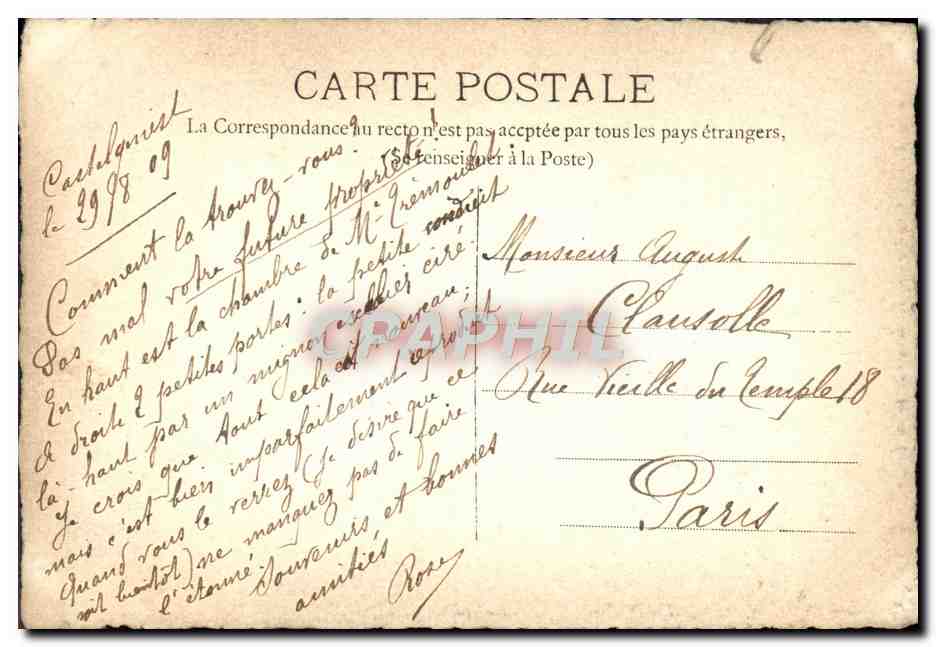 CARTE POSTALE
La Correspondance au recto n'est pas accptée par tous les pays étrangers,
(Se renseigner à la Poste)
le 29/8 09
Comment la trouvez-vous?
Pas mal votre future propriété!
En haut est la chambre de Mr Trémoulet.
à droite 2 petites portes: la petite conduit
là-haut par un mignon escalier ciré.
Je crois que tout cela est nouveau;
mais c'est bien imparfaitement reproduit
Quand vous le verrez (je désire que ce
soit bientôt) ne manquez pas de faire
l'étonné. Souvenirs et bonnes
amitiés
Rose
Monsieur August
Clausolle
Rue Vieille du Temple 18
Paris
CPAPHIL